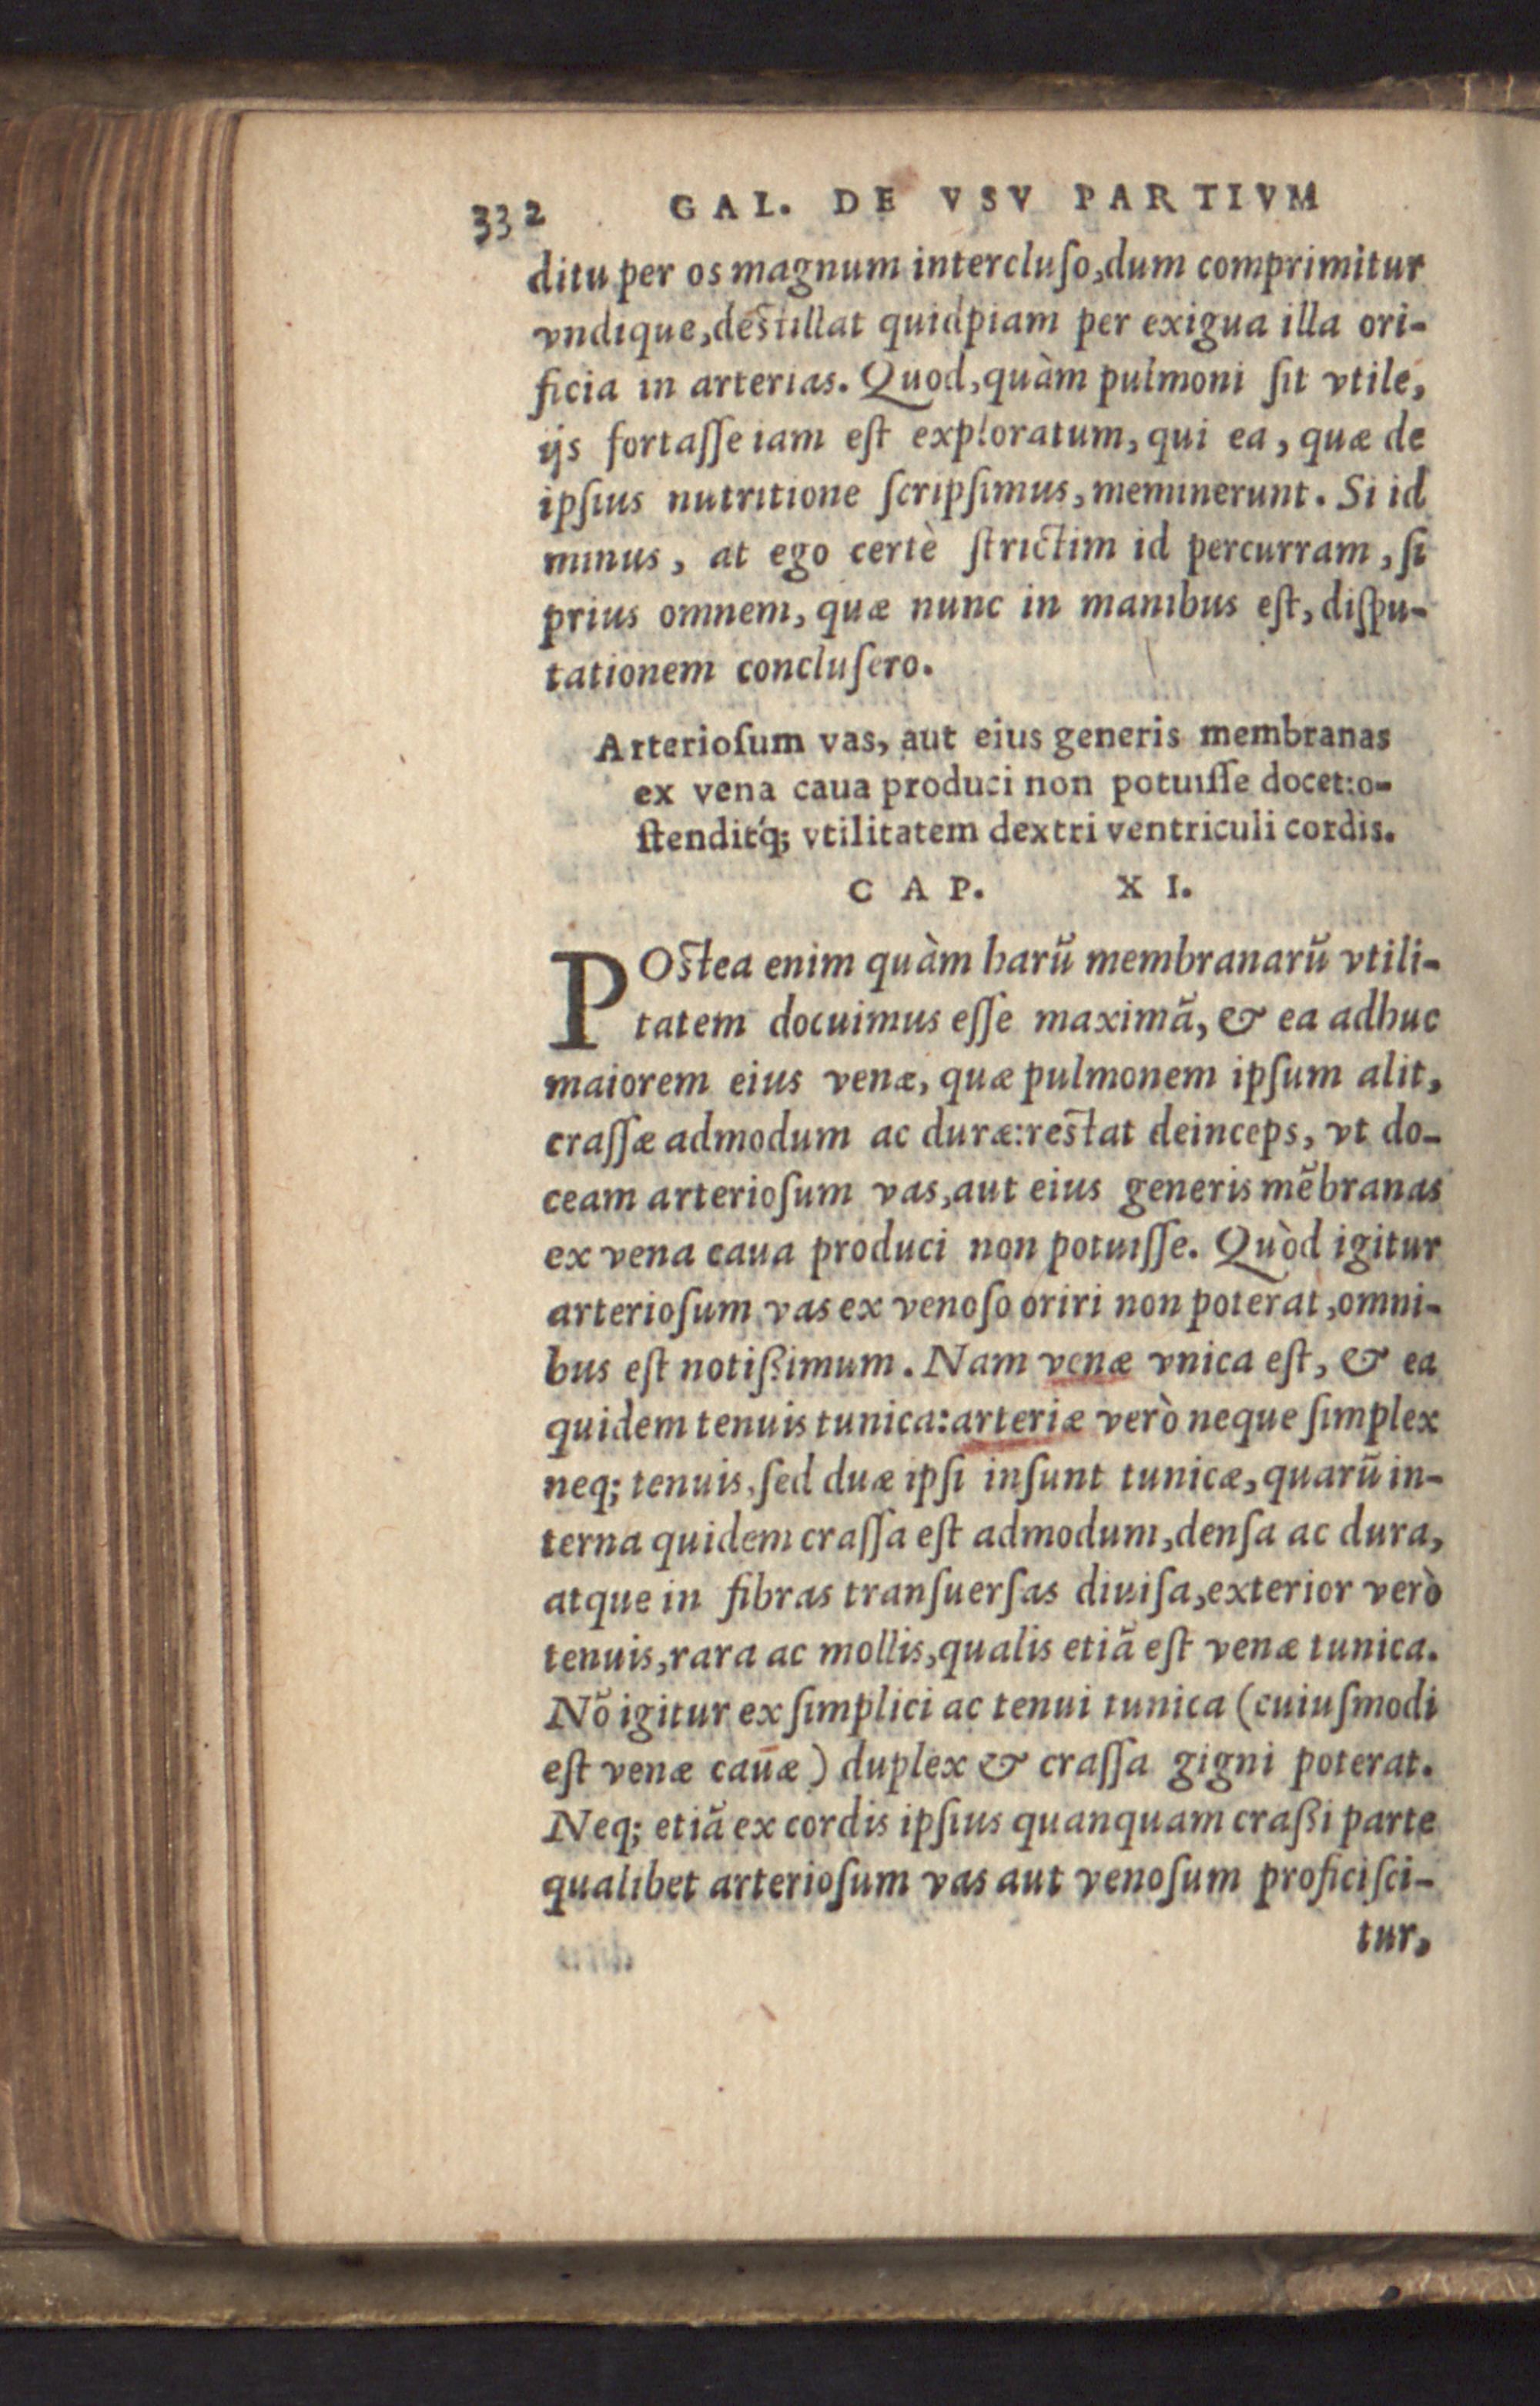 332 GAL. DE VSV PARTIVM
ditu per os magnum intercluſo, dum comprimitur
vndique, deſtillat quidpiam per exigua illa ori-
ficia in arterias. Quod, quàm pulmoni ſit vtile,
ijs fortaſſe iam eſt exploratum, qui ea, quæ de
ipſius nutritione ſcripſimus, meminerunt. Si id
minus, at ego certè ſtrictim id percurram, ſi
prius omnem, quæ nunc in manibus eſt, diſpu-
tationem concluſero.
Arterioſum vas, aut eius generis membranas
ex vena caua produci non potuiſſe docet: o-
ſtenditq́; vtilitatem dextri ventriculi cordis.
CAP. XI.
POſtea enim quàm harũ membranarũ vtili-
tatem docuimus eſſe maximã, & ea adhuc
maiorem eius venæ, quæ pulmonem ipſum alit,
craſſæ admodum ac duræ: reſtat deinceps, vt do-
ceam arterioſum vas, aut eius generis mẽbranas
ex vena caua produci non potuiſſe. Quòd igitur
arterioſum vas ex venoſo oriri non poterat, omni-
bus eſt notißimum. Nam venæ vnica eſt, & ea
quidem tenuis tunica: arteriæ verò neque ſimplex
neq; tenuis, ſed duæ ipſi inſunt tunicæ, quarũ in-
terna quidem craſſa eſt admodum, denſa ac dura,
atque in fibras tranſuerſas diuiſa, exterior verò
tenuis, rara ac mollis, qualis etiã eſt venæ tunica.
Nõ igitur ex ſimplici ac tenui tunica (cuiuſmodi
eſt venæ cauæ) duplex & craſſa gigni poterat.
Neq; etiã ex cordis ipſius quanquam craßi parte
qualibet arterioſum vas aut venoſum proficiſci-
tur,